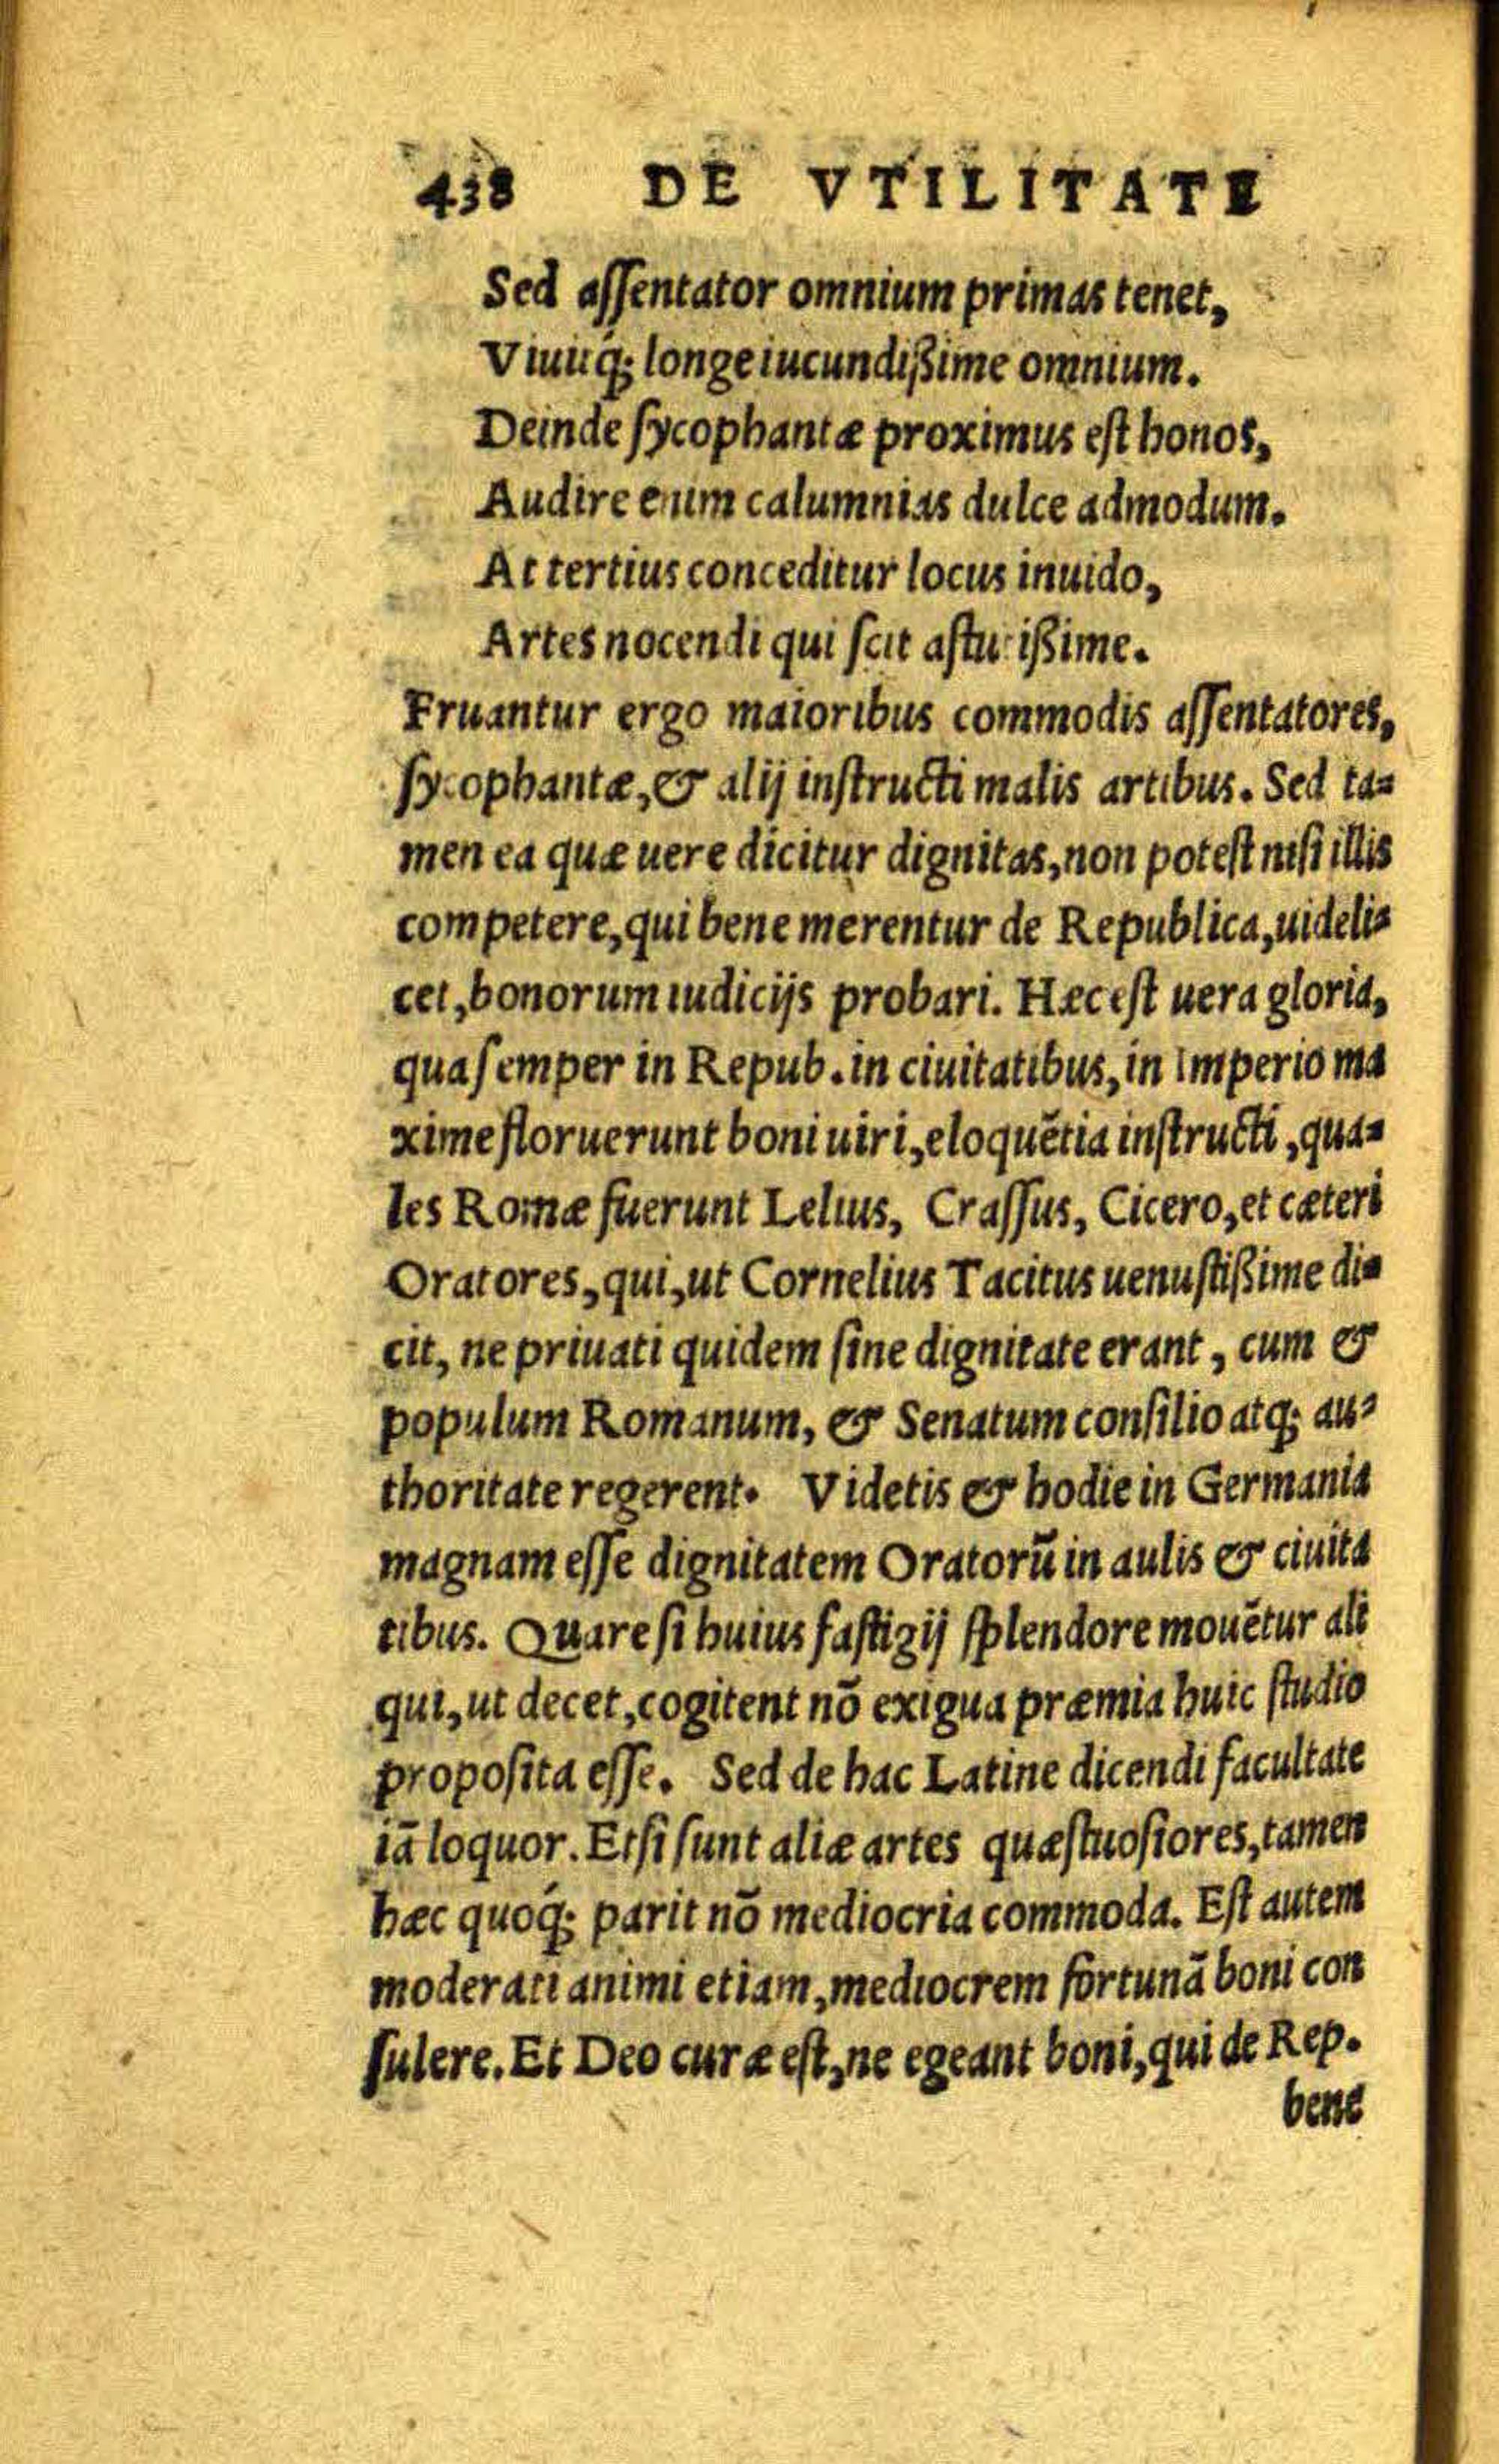 438 DE VTILITATE
Sed aſſentator omnium primas tenet,
Viuitq́; longe iucundißime omnium.
Deinde ſycophantæ proximus eſt honos,
Audire enim calumnias dulce admodum.
At tertius conceditur locus inuido,
Artes nocendi qui ſcit aſtutißime.
Fruantur ergo maioribus commodis aſſentatores,
ſycophantæ, & alij inſtructi malis artibus. Sed ta=
men ea quæ uere dicitur dignitas, non poteſt niſi illis
competere, qui bene merentur de Republica, uideli=
cet, bonorum iudicijs probari. Hæc eſt uera gloria,
qua ſemper in Repub. in ciuitatibus, in Imperio ma
xime floruerunt boni uiri, eloquẽtia inſtructi, qua=
les Romæ fuerunt Lelius, Craſſus, Cicero, et cæteri
Oratores, qui, ut Cornelius Tacitus uenuſtißime di=
cit, ne priuati quidem ſine dignitate erant, cum &
populum Romanum, & Senatum conſilio atq; au=
thoritate regerent. Videtis & hodie in Germania
magnam eſſe dignitatem Oratorũ in aulis & ciuita
tibus. Quare ſi huius faſtigij ſplendore mouẽtur ali
qui, ut decet, cogitent nõ exigua præmia huic ſtudio
propoſita eſſe. Sed de hac Latine dicendi facultate
iã loquor. Etſi ſunt aliæ artes quæſtuoſiores, tamen
hæc quoq́; parit nõ mediocria commoda. Eſt autem
moderati animi etiam, mediocrem fortunã boni con
ſulere. Et Deo curæ eſt, ne egeant boni, qui de Rep.
bene